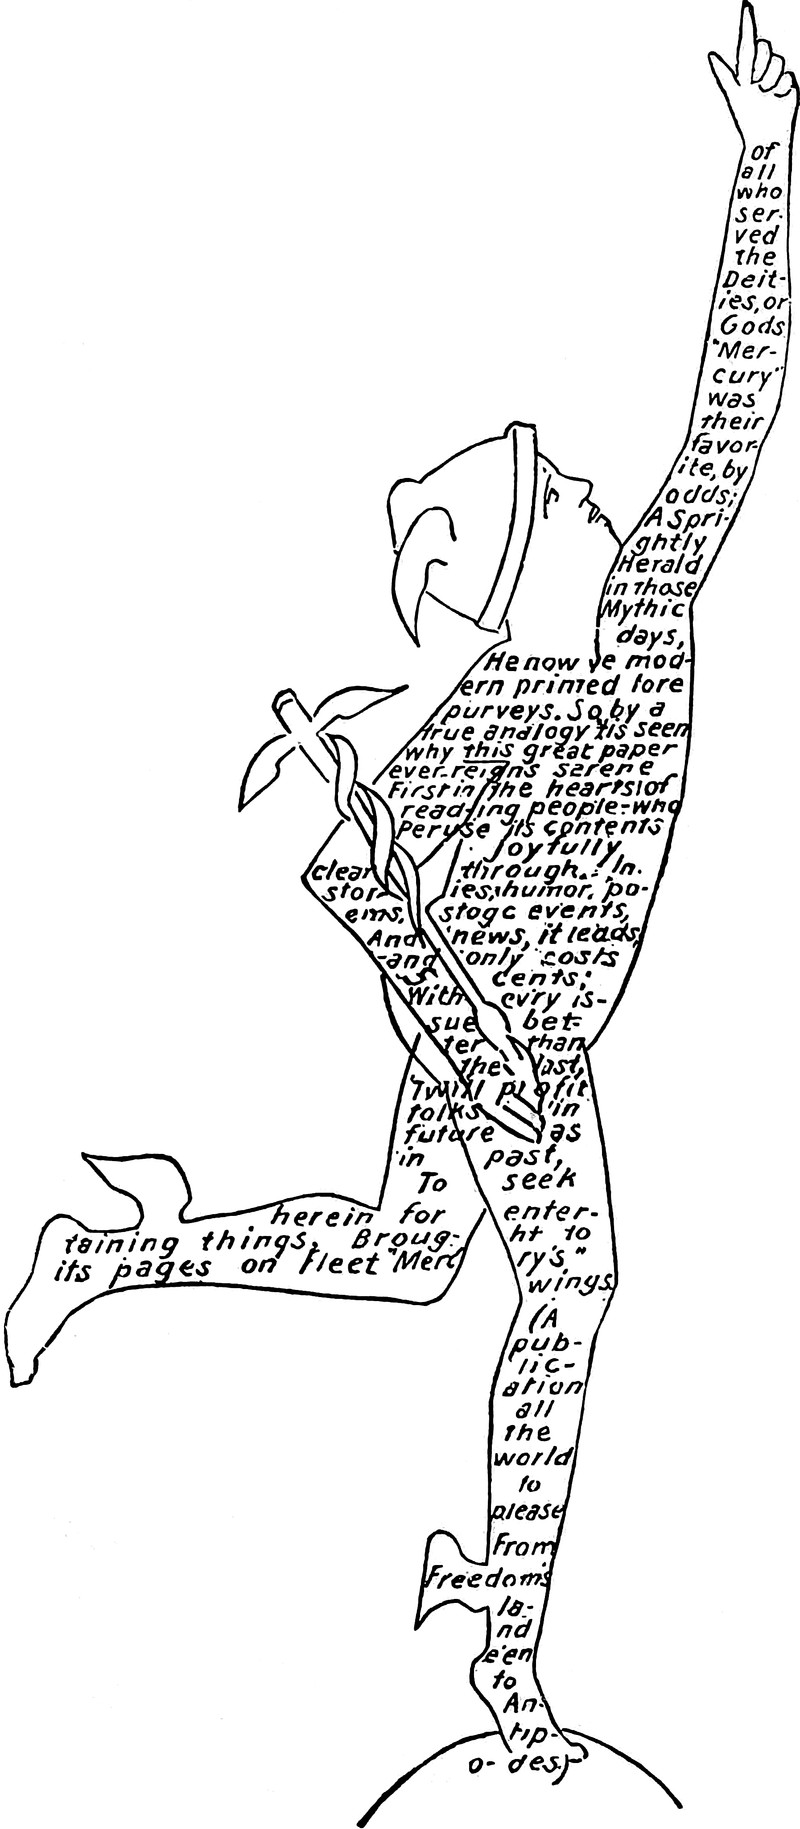 of
all
who
ser-
ved
the
Deit-
ies, or
Gods
"Mer-
cury"
was
their
favor-
ite, by
odds;
A Spri-
ghtly
Herald
in those
Mythic
days,
He now ye mod-
ern primed lore
purveys. So, by a
true analogy 'tis seen
why this great paper
ever-reigns serene
First in the hearts of
read-ing people-who
Peruse its contents
joyfully
clear through. In
stor- ies, humor, po-
ems, stage events,
And news, it leads,
-and only costs
5 cents;
With ev'ry is-
sue bet-
ter than
the last,
'Twill profit
folks in
future as
in past,
To seek
herein for enter-
taining things, Broug- ht to
its pages on fleet "Mercu- ry's"
wings.
(A
pub-
lic-
ation
all
the
world
to
please
From
Freedom's
la-
nd
e'en
to
An-
tip-
o-des.)